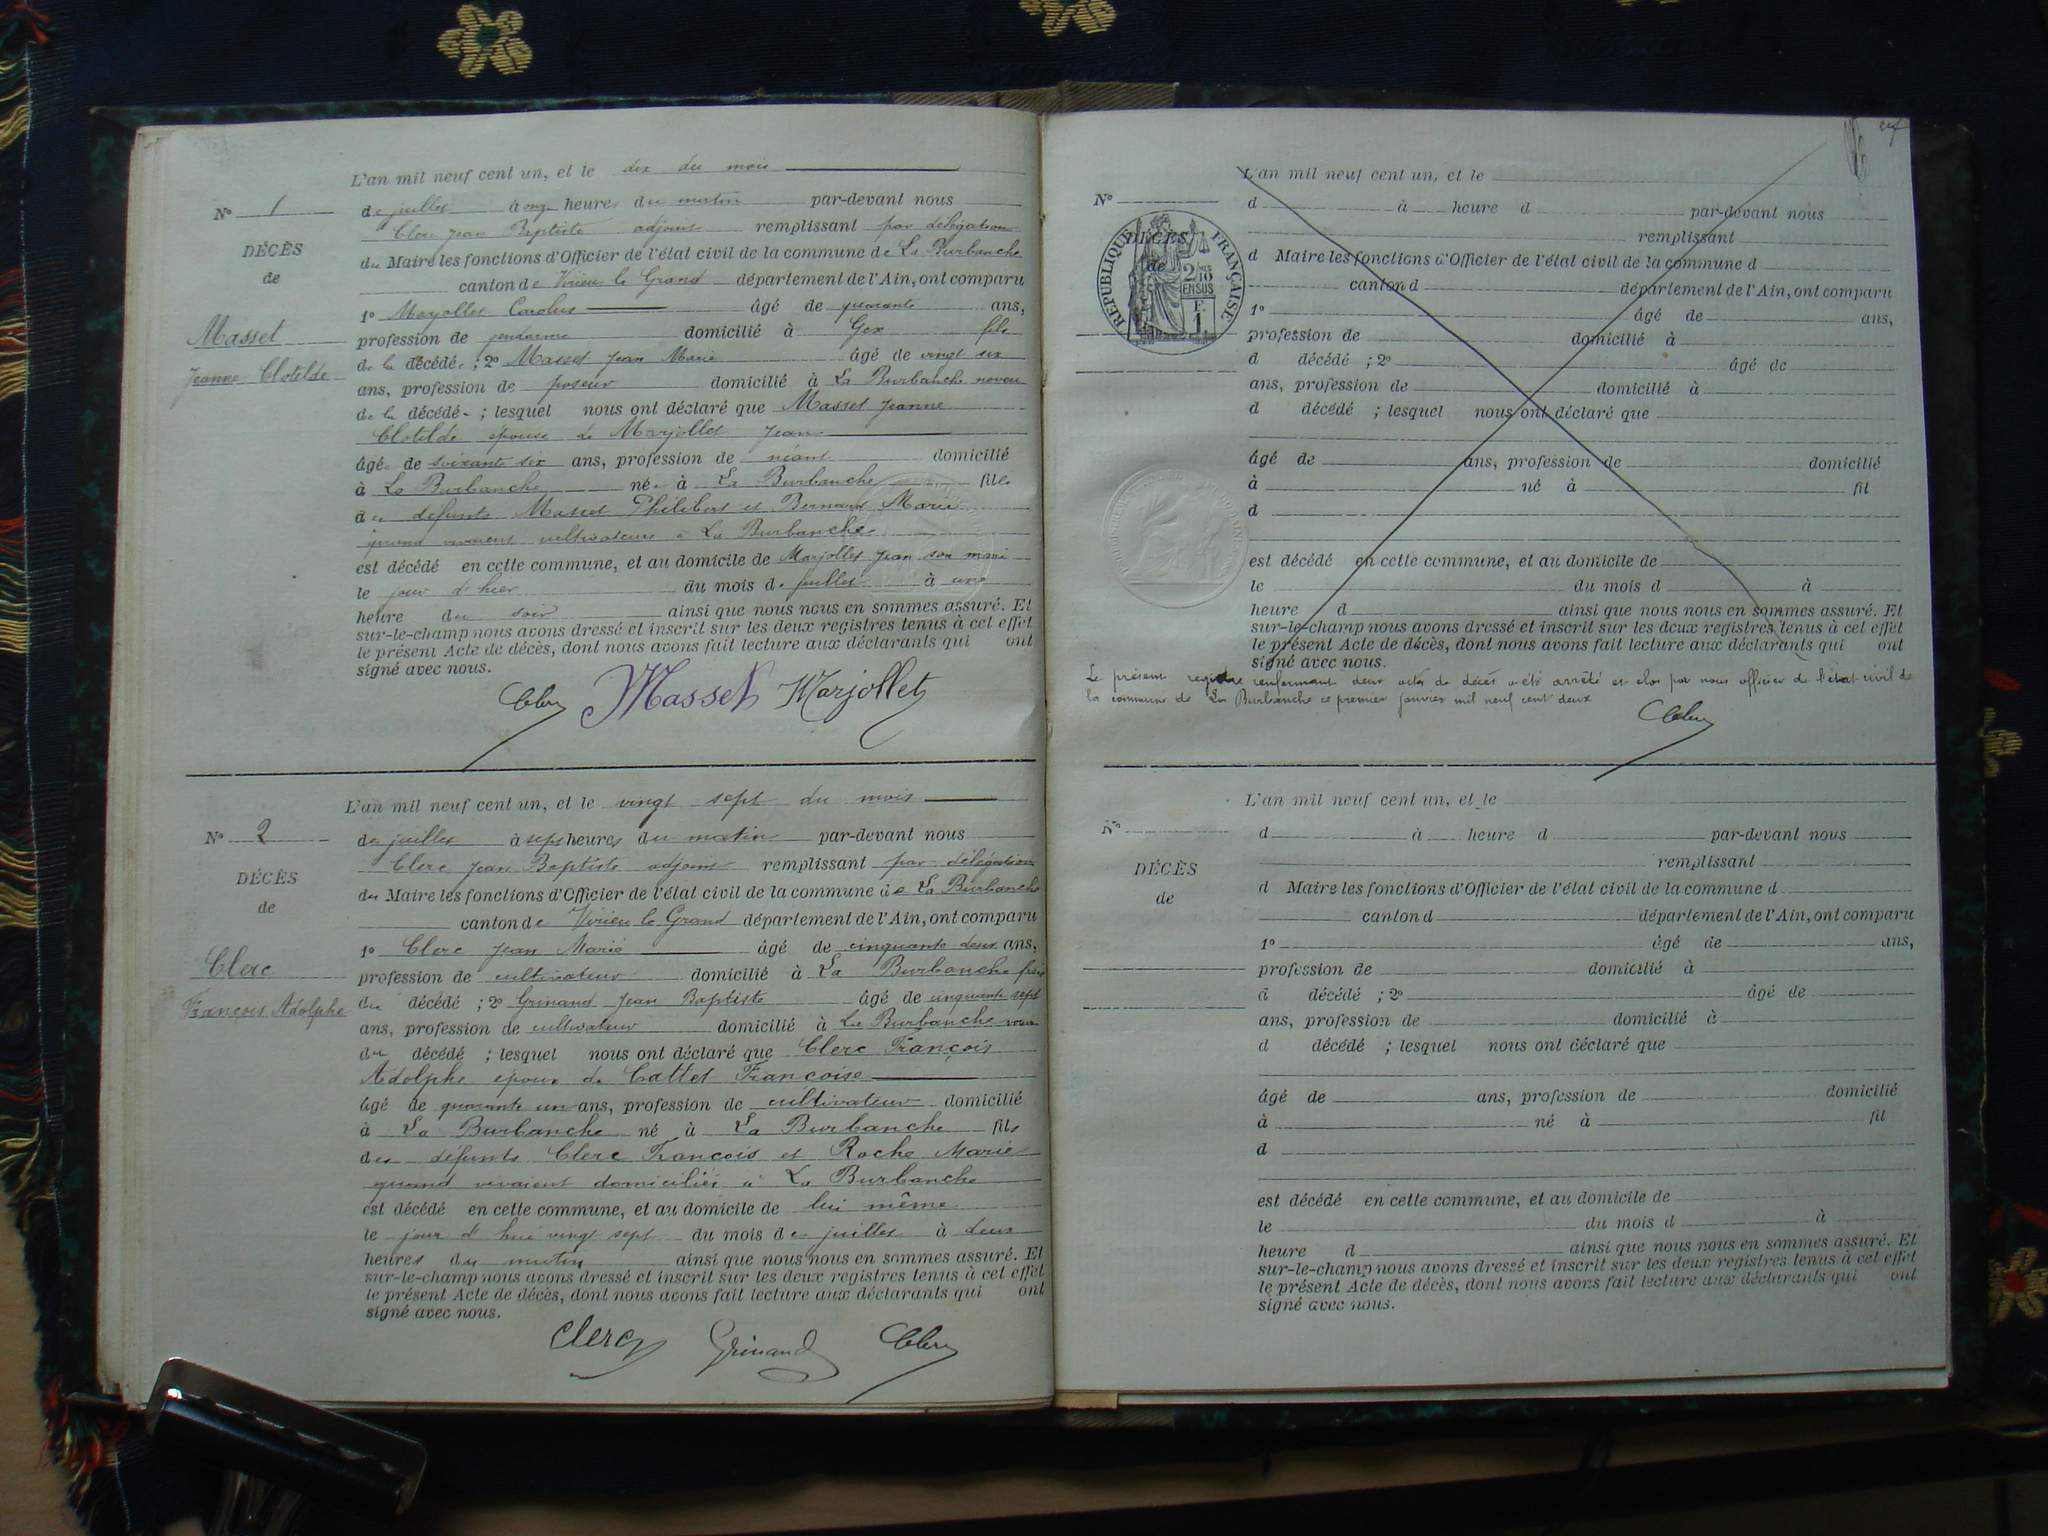 L'an mil neuf cent un, et le dix du mois
N° 1 de juillet à onze heures du matin par-devant nous
Clerc Jean Baptiste adjoint remplissant par délégation
DÉCÈS
du Maire les fonctions d'Officier de l'état civil de la commune de La Burbanche
de
canton de Virieu le Grand département de l'Ain, ont comparu
1° Marjollet Carolus âgé de quarante ans,
Masset
profession de gendarme domicilié à Gex fils
de la décédée ; 2° Masset Jean Marie âgé de vingt six
Jeanne Clotilde
ans, profession de poseur domicilié à La Burbanche neveu
de la décédée ; lesquel nous ont déclaré que Masset Jeanne
Clotilde épouse de Marjollet Jean
âgée de soixante six ans, profession de néant domicilié
à La Burbanche née à La Burbanche fille
des défunts Masset Philibert et Bernard Marie
quand vivaient cultivateurs à La Burbanche
est décédé en cette commune, et au domicile de Marjollet Jean son mari
le jour d'hier du mois de juillet à une
heure du soir ainsi que nous nous en sommes assuré. Et
sur-le-champ nous avons dressé et inscrit sur les deux registres tenus à cet effet
le présent Acte de décès, dont nous avons fait lecture aux déclarants qui ont
signé avec nous.
Clerc Masset Marjollet
L'an mil neuf cent un, et le vingt sept du mois
N° 2 de juillet à sept heures du matin par-devant nous
Clerc Jean Baptiste adjoint remplissant par délégation
DÉCÈS
du Maire les fonctions d'Officier de l'état civil de la commune de La Burbanche
de
canton de Virieu le Grand département de l'Ain, ont comparu
1° Clerc Jean Marie âgé de cinquante deux ans,
Clerc
profession de cultivateur domicilié à La Burbanche frère
François Adolphe
du décédé ; 2° Grinand Jean Baptiste âgé de cinquante sept
ans, profession de cultivateur domicilié à La Burbanche
du décédé ; lesquel nous ont déclaré que Clerc François
Adolphe époux de Cattet Françoise
âgé de quarante un ans, profession de cultivateur domicilié
à La Burbanche né à La Burbanche fils
des défunts Clerc François et Roche Marie
quand vivaient domiciliés à La Burbanche
est décédé en cette commune, et au domicile de lui même
le jour d'hui vingt sept du mois de juillet à deux
heures du matin ainsi que nous nous en sommes assuré. Et
sur-le-champ nous avons dressé et inscrit sur les deux registres tenus à cet effet
le présent Acte de décès, dont nous avons fait lecture aux déclarants qui ont
signé avec nous.
Clerc Grinand Clerc
L'an mil neuf cent un, et le
N° d à heure d par-devant nous
remplissant
DÉCÈS
de
RÉPUBLIQUE FRANÇAISE
2/10 EN SUS
F. 1.
d Maire les fonctions d'Officier de l'état civil de la commune d
canton d département de l'Ain, ont comparu
1° âgé de ans,
profession de domicilié à
d décédé ; 2° âgé de
ans, profession de domicilié à
d décédé ; lesquel nous ont déclaré que
âgé de ans, profession de domicilié
à né à fil
d
est décédé en cette commune, et au domicile de
le du mois d à
heure d ainsi que nous nous en sommes assuré. Et
sur-le-champ nous avons dressé et inscrit sur les deux registres tenus à cet effet
le présent Acte de décès, dont nous avons fait lecture aux déclarants qui ont
signé avec nous.
Le présent registre renfermant deux actes de décès a été arrêté et clos par nous officier de l'état civil de
la commune de La Burbanche ce premier janvier mil neuf cent deux
Clerc
L'an mil neuf cent un, et le
N° d à heure d par-devant nous
remplissant
DÉCÈS
d Maire les fonctions d'Officier de l'état civil de la commune d
de
canton d département de l'Ain, ont comparu
1° âgé de ans,
profession de domicilié à
d décédé ; 2° âgé de
ans, profession de domicilié à
d décédé ; lesquel nous ont déclaré que
âgé de ans, profession de domicilié
à né à fil
d
est décédé en cette commune, et au domicile de
le du mois d à
heure d ainsi que nous nous en sommes assuré. Et
sur-le-champ nous avons dressé et inscrit sur les deux registres tenus à cet effet
le présent Acte de décès, dont nous avons fait lecture aux déclarants qui ont
signé avec nous.